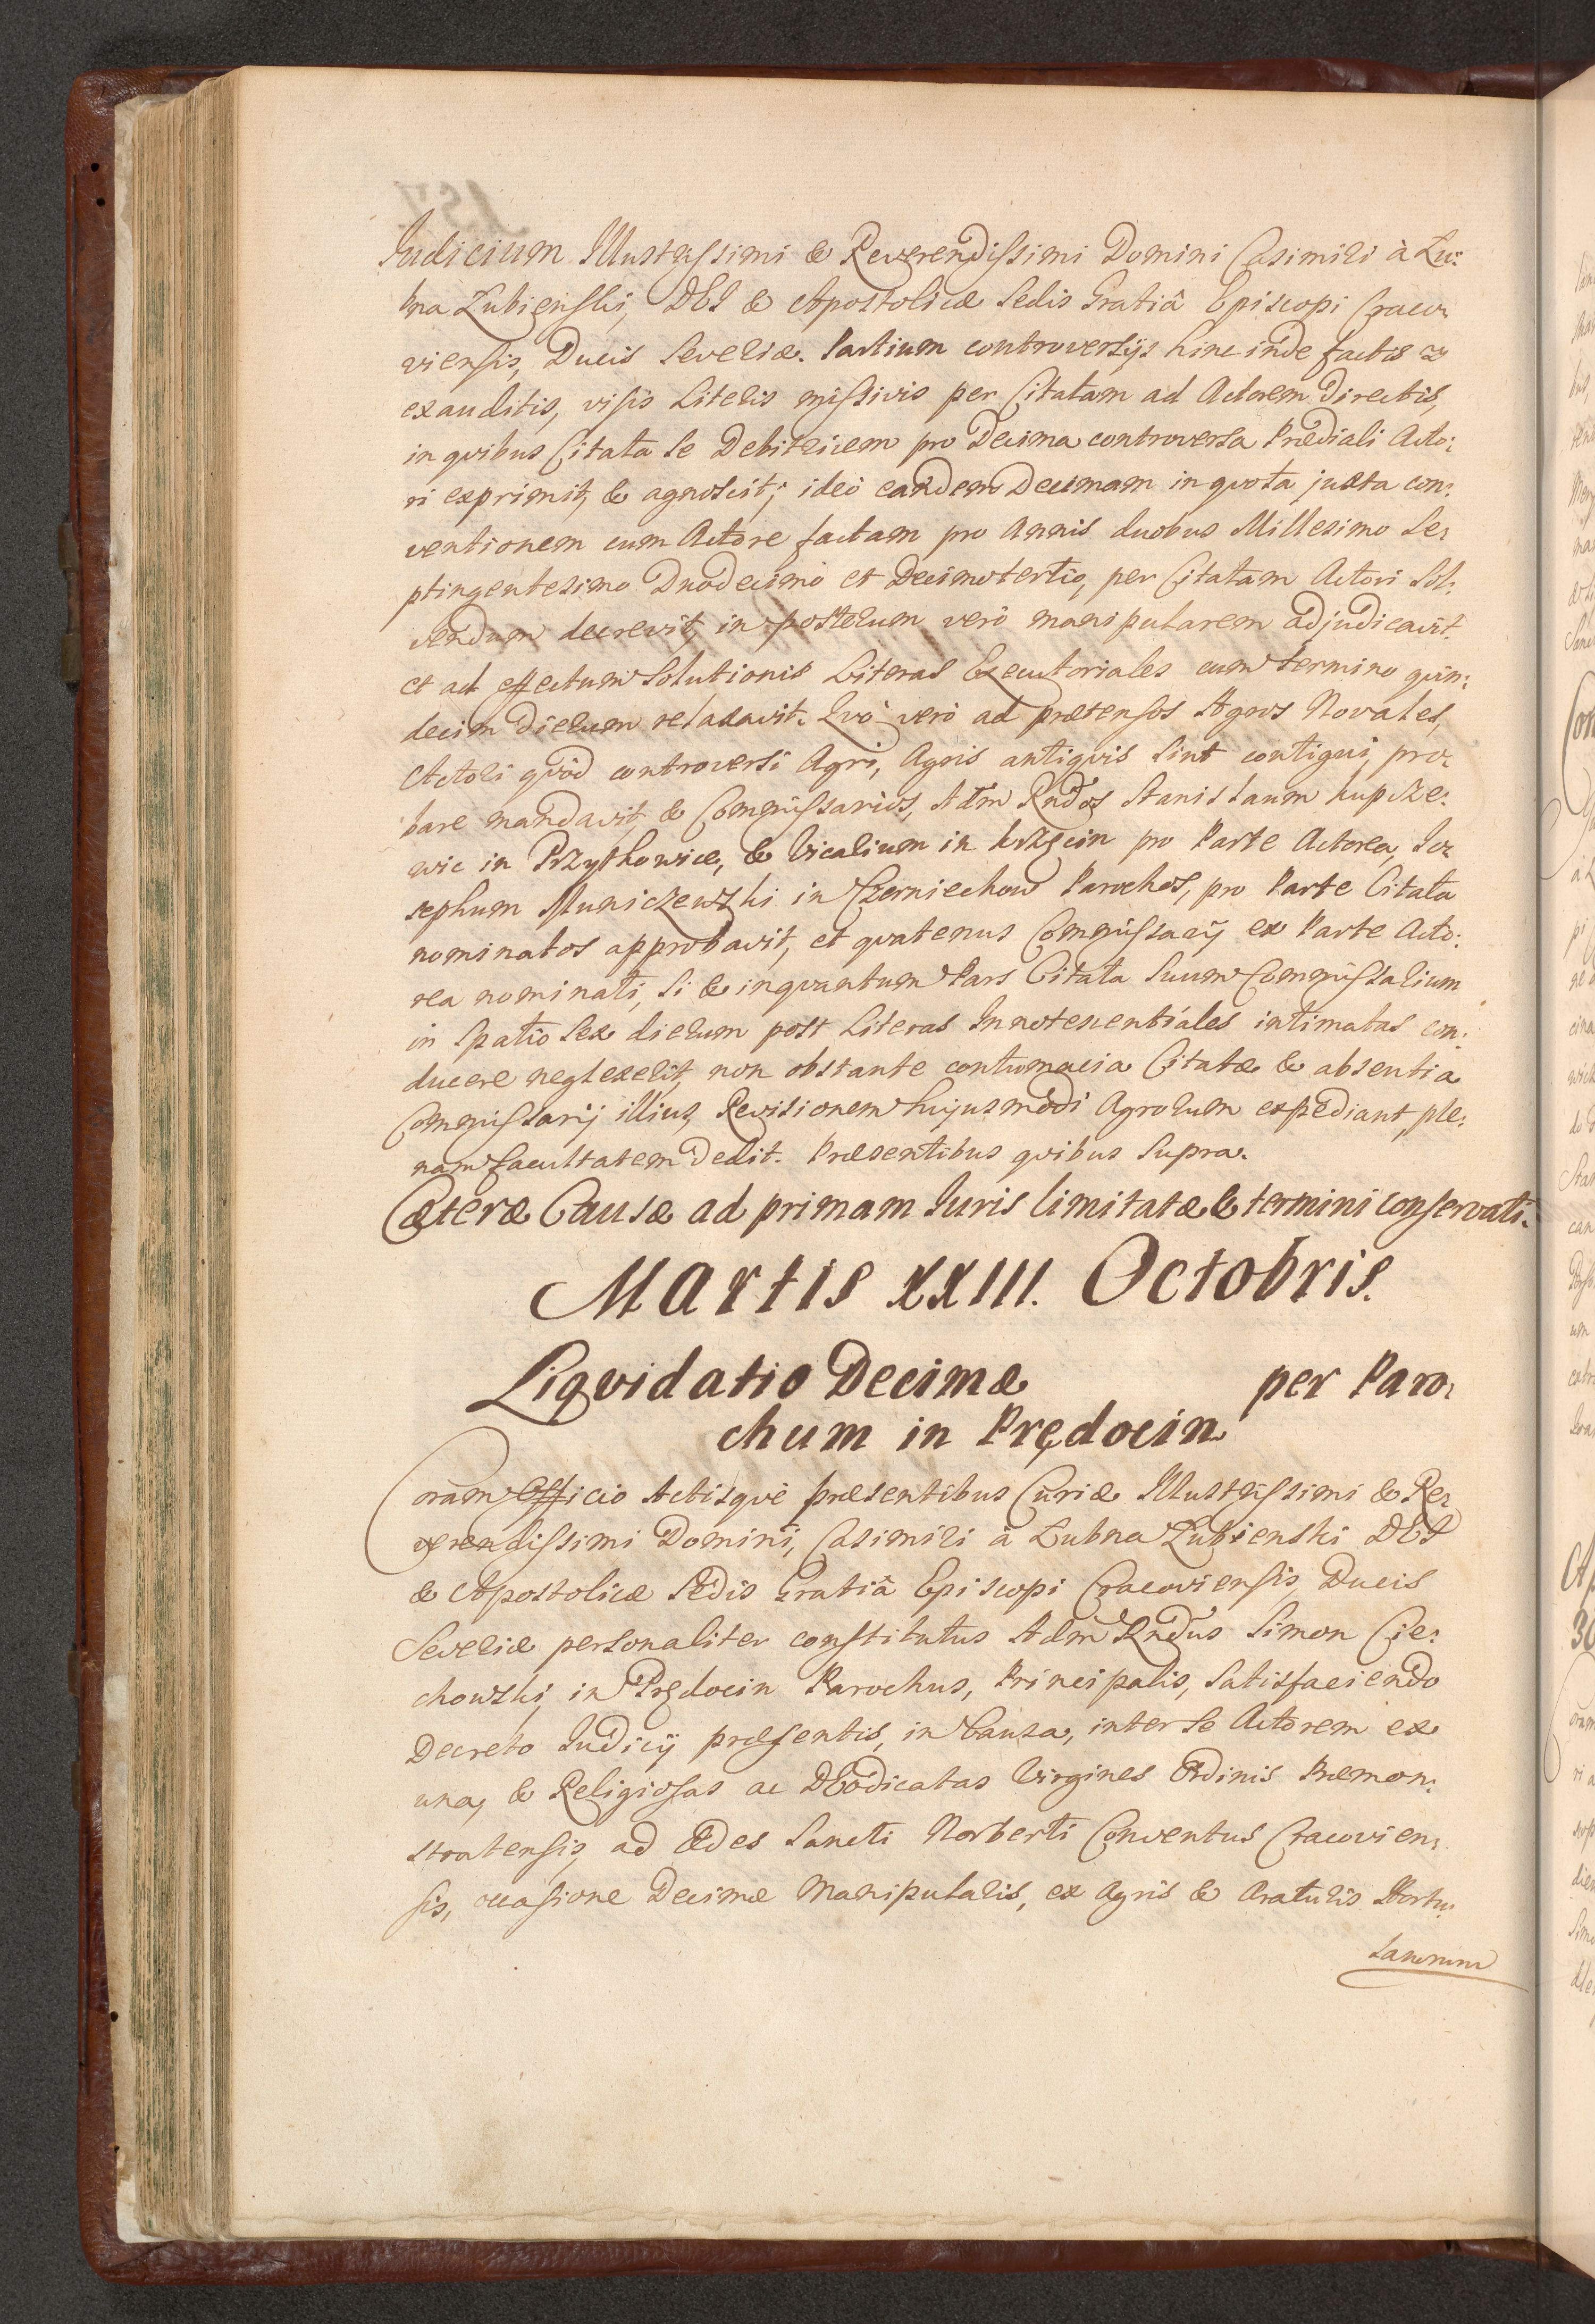 Judicium Illustrissimi & Reverendissimi Domini Casimiri à Lu:
bna Łubienski, DEI & Apostolicæ Sedis Gratiâ Episcopi Craco:
viensis, Ducis Severiæ. Partium controversijs hinc inde factis &
exauditis, visis Literis missivis per Citatam ad Actorem directis,
in quibus Citata se Debitricem pro Decima controversa Prædiali Acto:
ri exprimit, & agnoscit; ideò eandem Decimam in quota juxta con:
ventionem cum Actore factam pro Annis duobus Millesimo Se:
ptingentesimo Duodecimo et Decimotertio, per Citatam Actori sol:
vendam decrevit, in posterum verò manipularem adjudicavit.
et ad effectum Solutionis Literas Executoriales cum termino quin:
decim dierum relaxavit. Quò verò ad prætensos Agros Novales,
Actori quòd controversi Agri, Agris antiquis sint contigui, pro:
bare mandavit, & Commissarios, Adm Rndos Stanislaum Kupcze:
wic in Przytkowice, & Vicarium in Krzęcin pro Parte Actorea, Jo:
sephum Municzewski in Czerniechow Parochos, pro Parte Citata
nominatos approbavit, et quatenus Commissarij ex Parte Acto:
rea nominati, si & inquantum Pars Citata suum Commissarium
in Spatio Sex dierum post Literas Innotescentiales intimatas con:
ducere neglexerit, non obstante contumacia Citatæ & absentia
Commissarij illius, Revisionem hujusmodi Agrorum expediant, ple:
nam facultatem dedit. Præsentibus quibus supra.
Cæteræ Causæ ad primam Juris limitatæ & termini conservati.
Martis XXIII. Octobris.
Liqvidatio Decimæ per Paro:
chum in Prędocin.
Coram Officio Actisquè præsentibus Curiæ Illustrissimi & Re:
verendissimi Domini, Casimiri à Lubna Łubienski DEI
& Apostolicæ Sedis Gratiâ Episcopi Cracoviensis, Ducis
Severiæ personaliter constitutus Adm Rndus Simon Cie:
chowski, in Prędocin Parochus, Principalis, satisfaciendo
Decreto Judicij præsentis, in Causa, inter se Actorem ex
una, & Religiosas ac DEodicatas Virgines Ordinis Præmon:
stratensis, ad Ædes Sancti Norberti Conventus Cracovien:
sis, occasione Decimæ Manipularis, ex Agris & Araturis Hortu:
lanorum